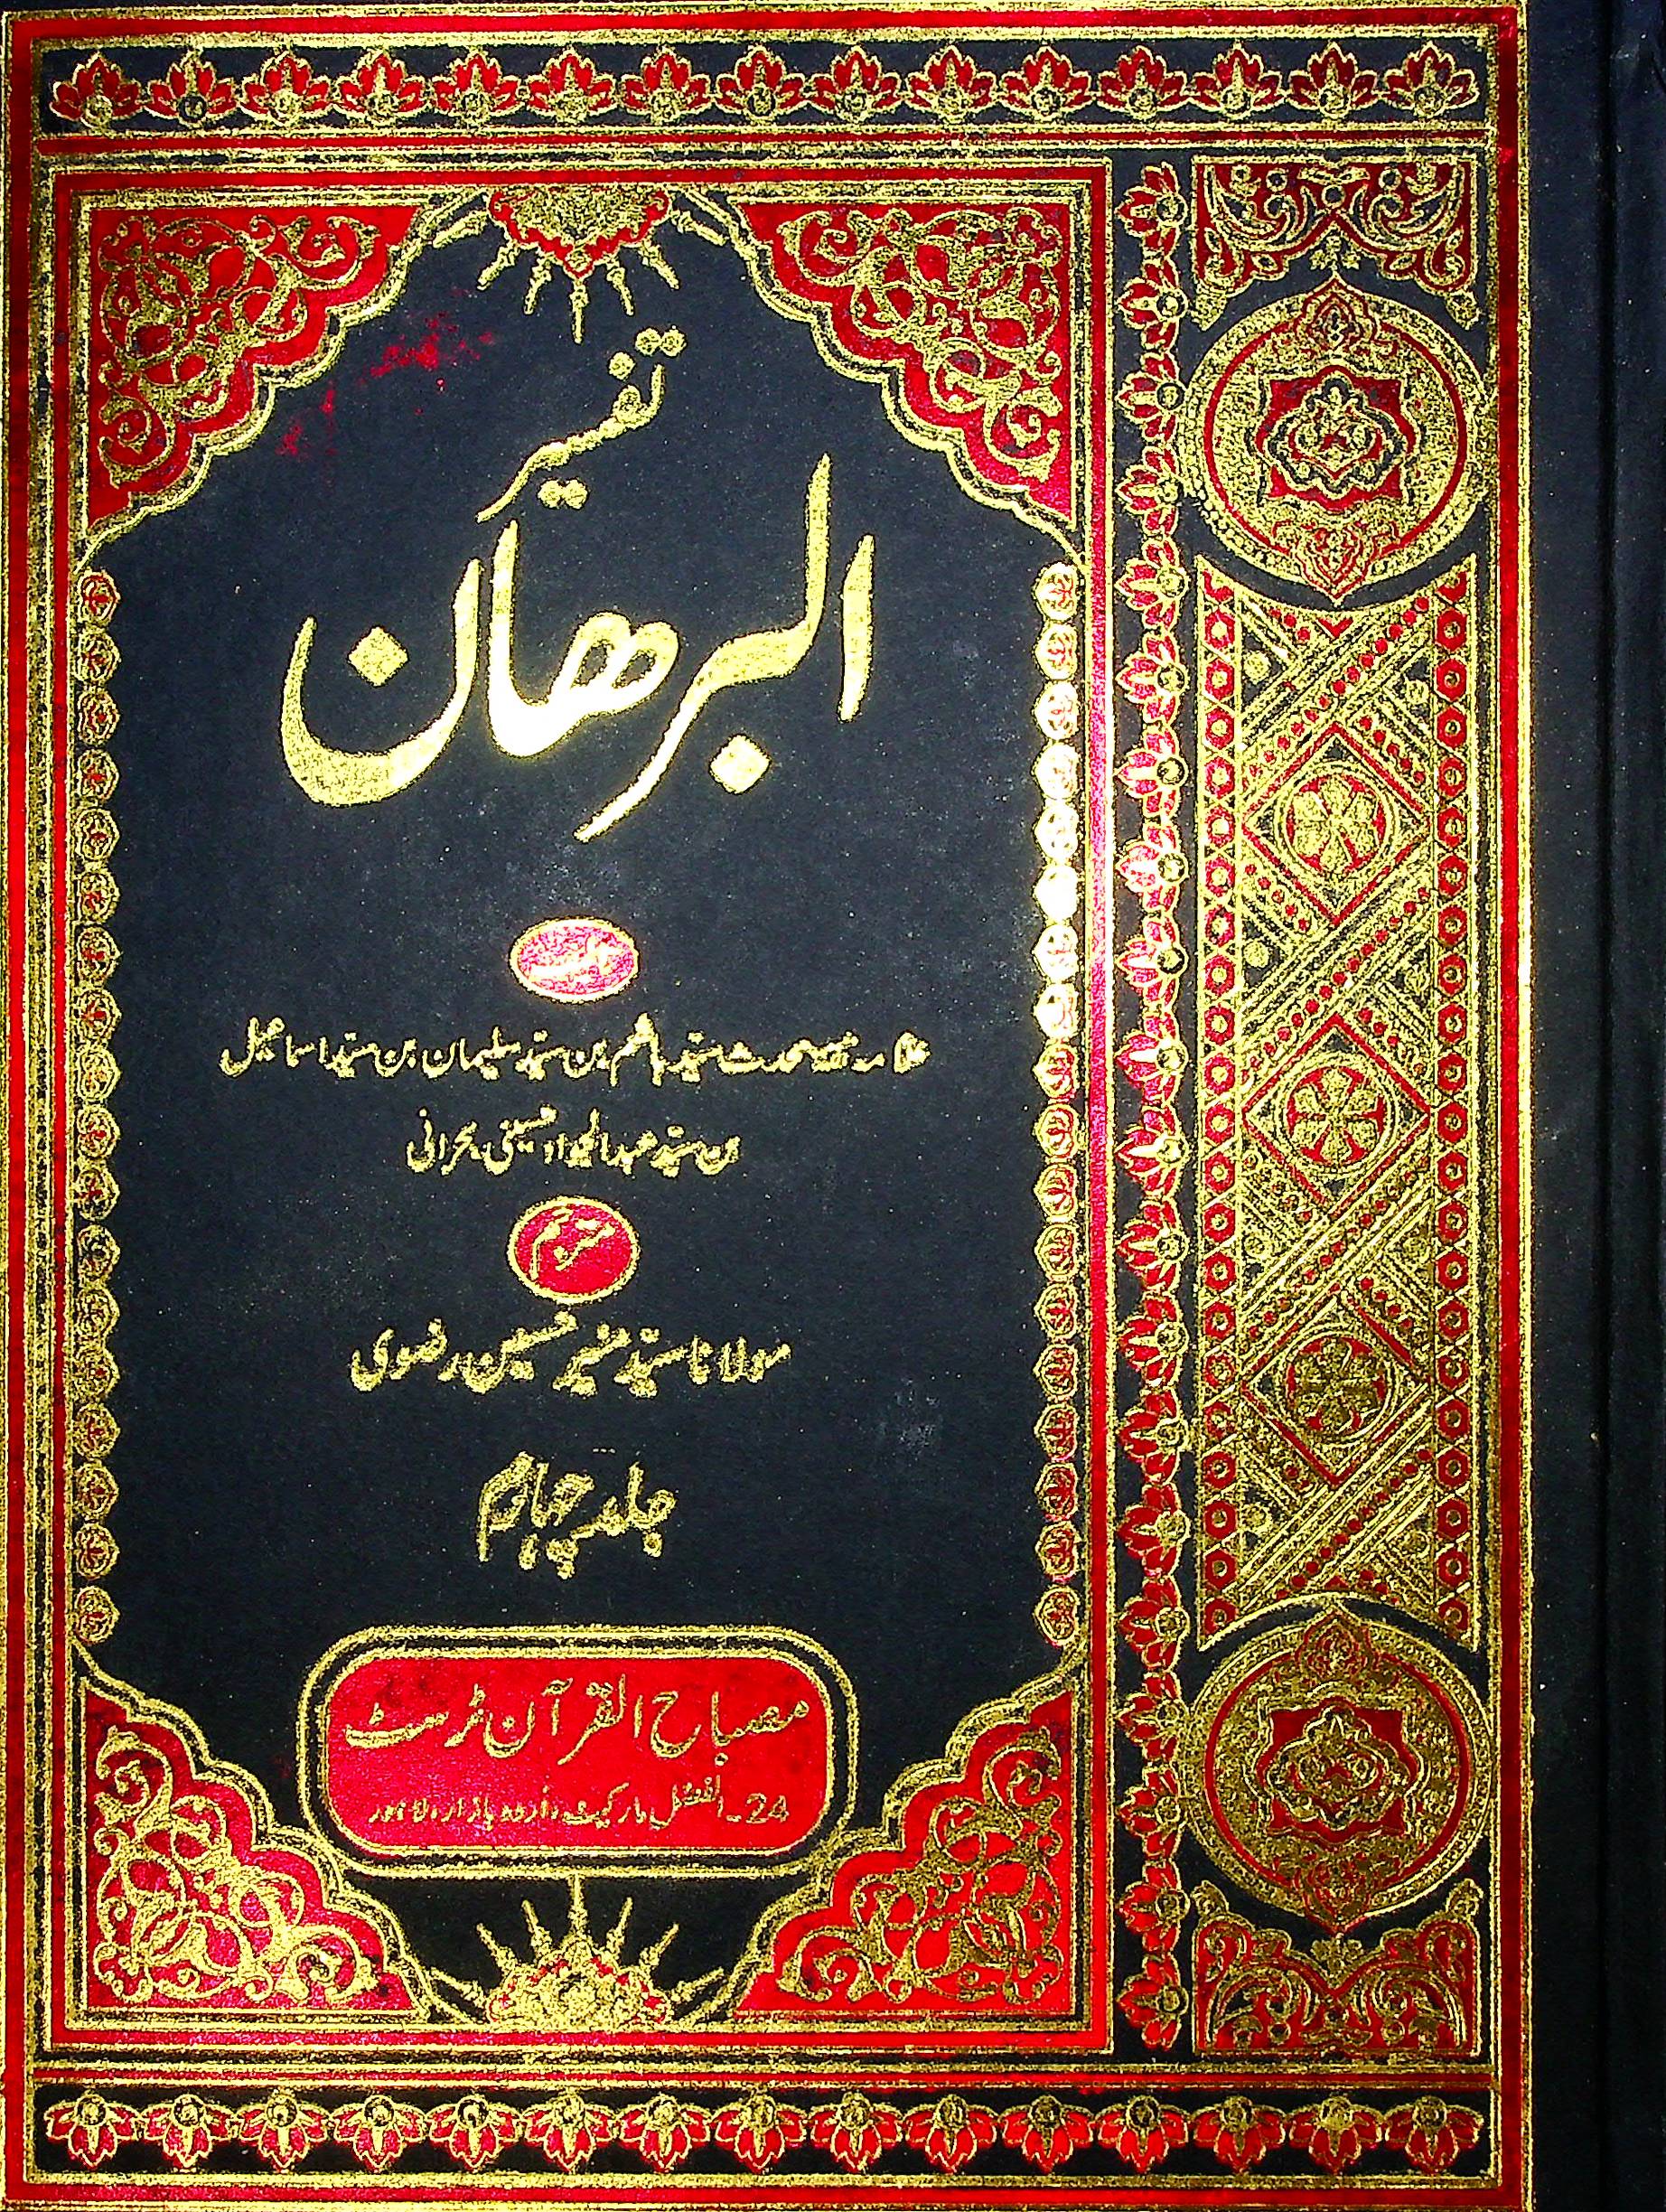 تفسیر
البرھان
علامہ محدث سیّد ہاشم بن سیّد سلیمان بن سیّد اسماعیل
بن سیّد عبدالجواد حسینی بحرانی
مترجم
مولانا سیّد منیر حسین رضوی
جلد چہارم
مصباح القرآن ٹرسٹ
24۔الفضل مارکیٹ، اردو بازار لاہور